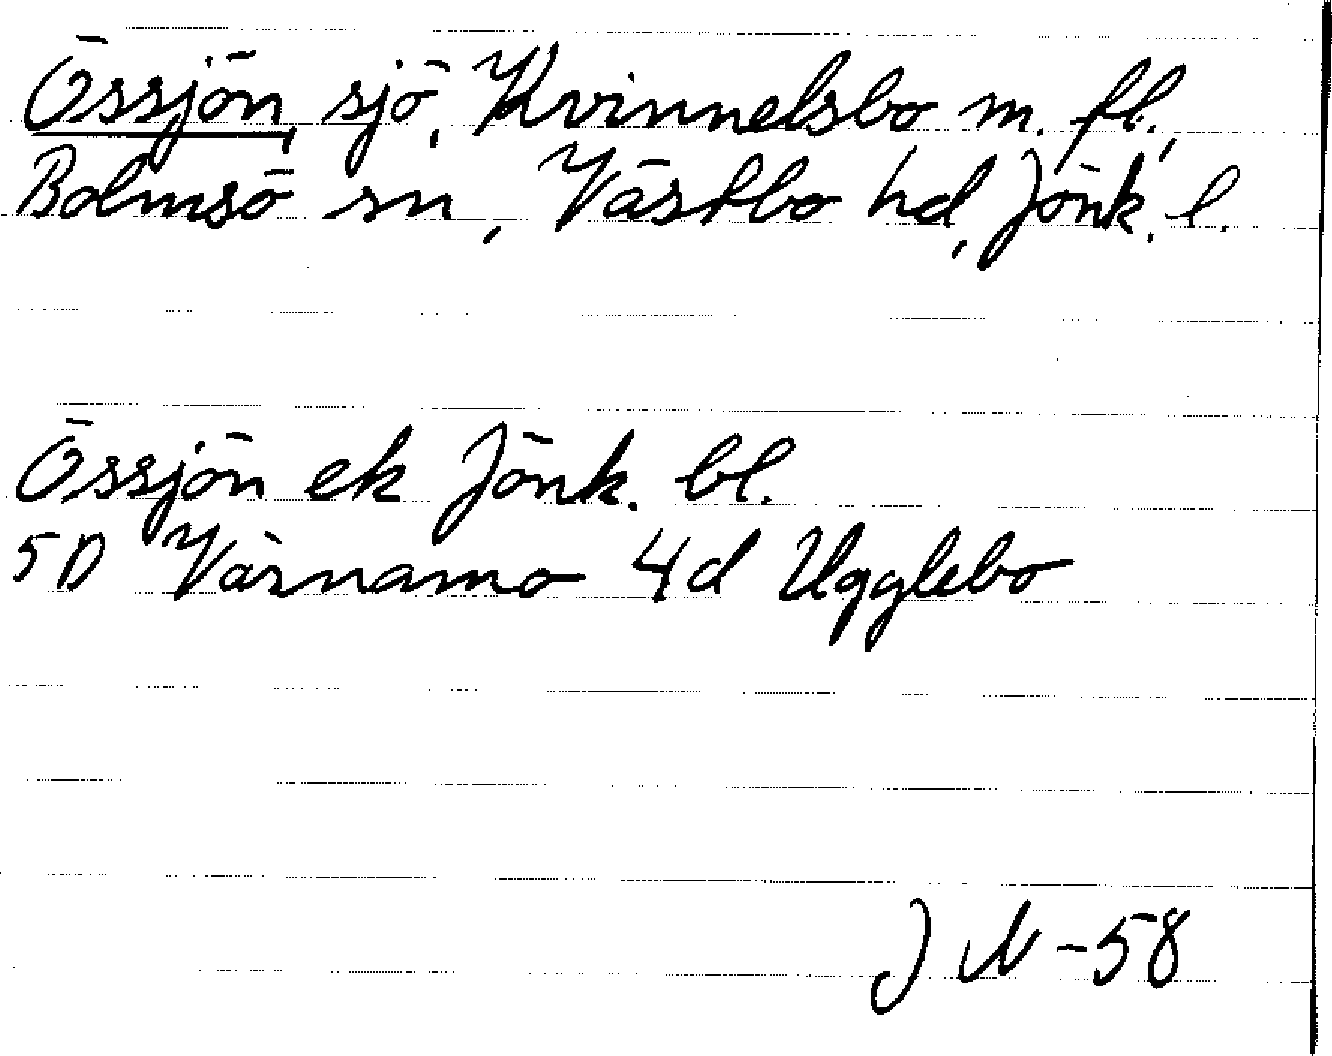 Össjön, sjö, Kvinnelsbo m. fl.,
Bolmsö sn, Västbo hd, Jönk. l.
Össjön ek Jönk. bl.
5D Värnamo 4d Ugglebo
J N -58